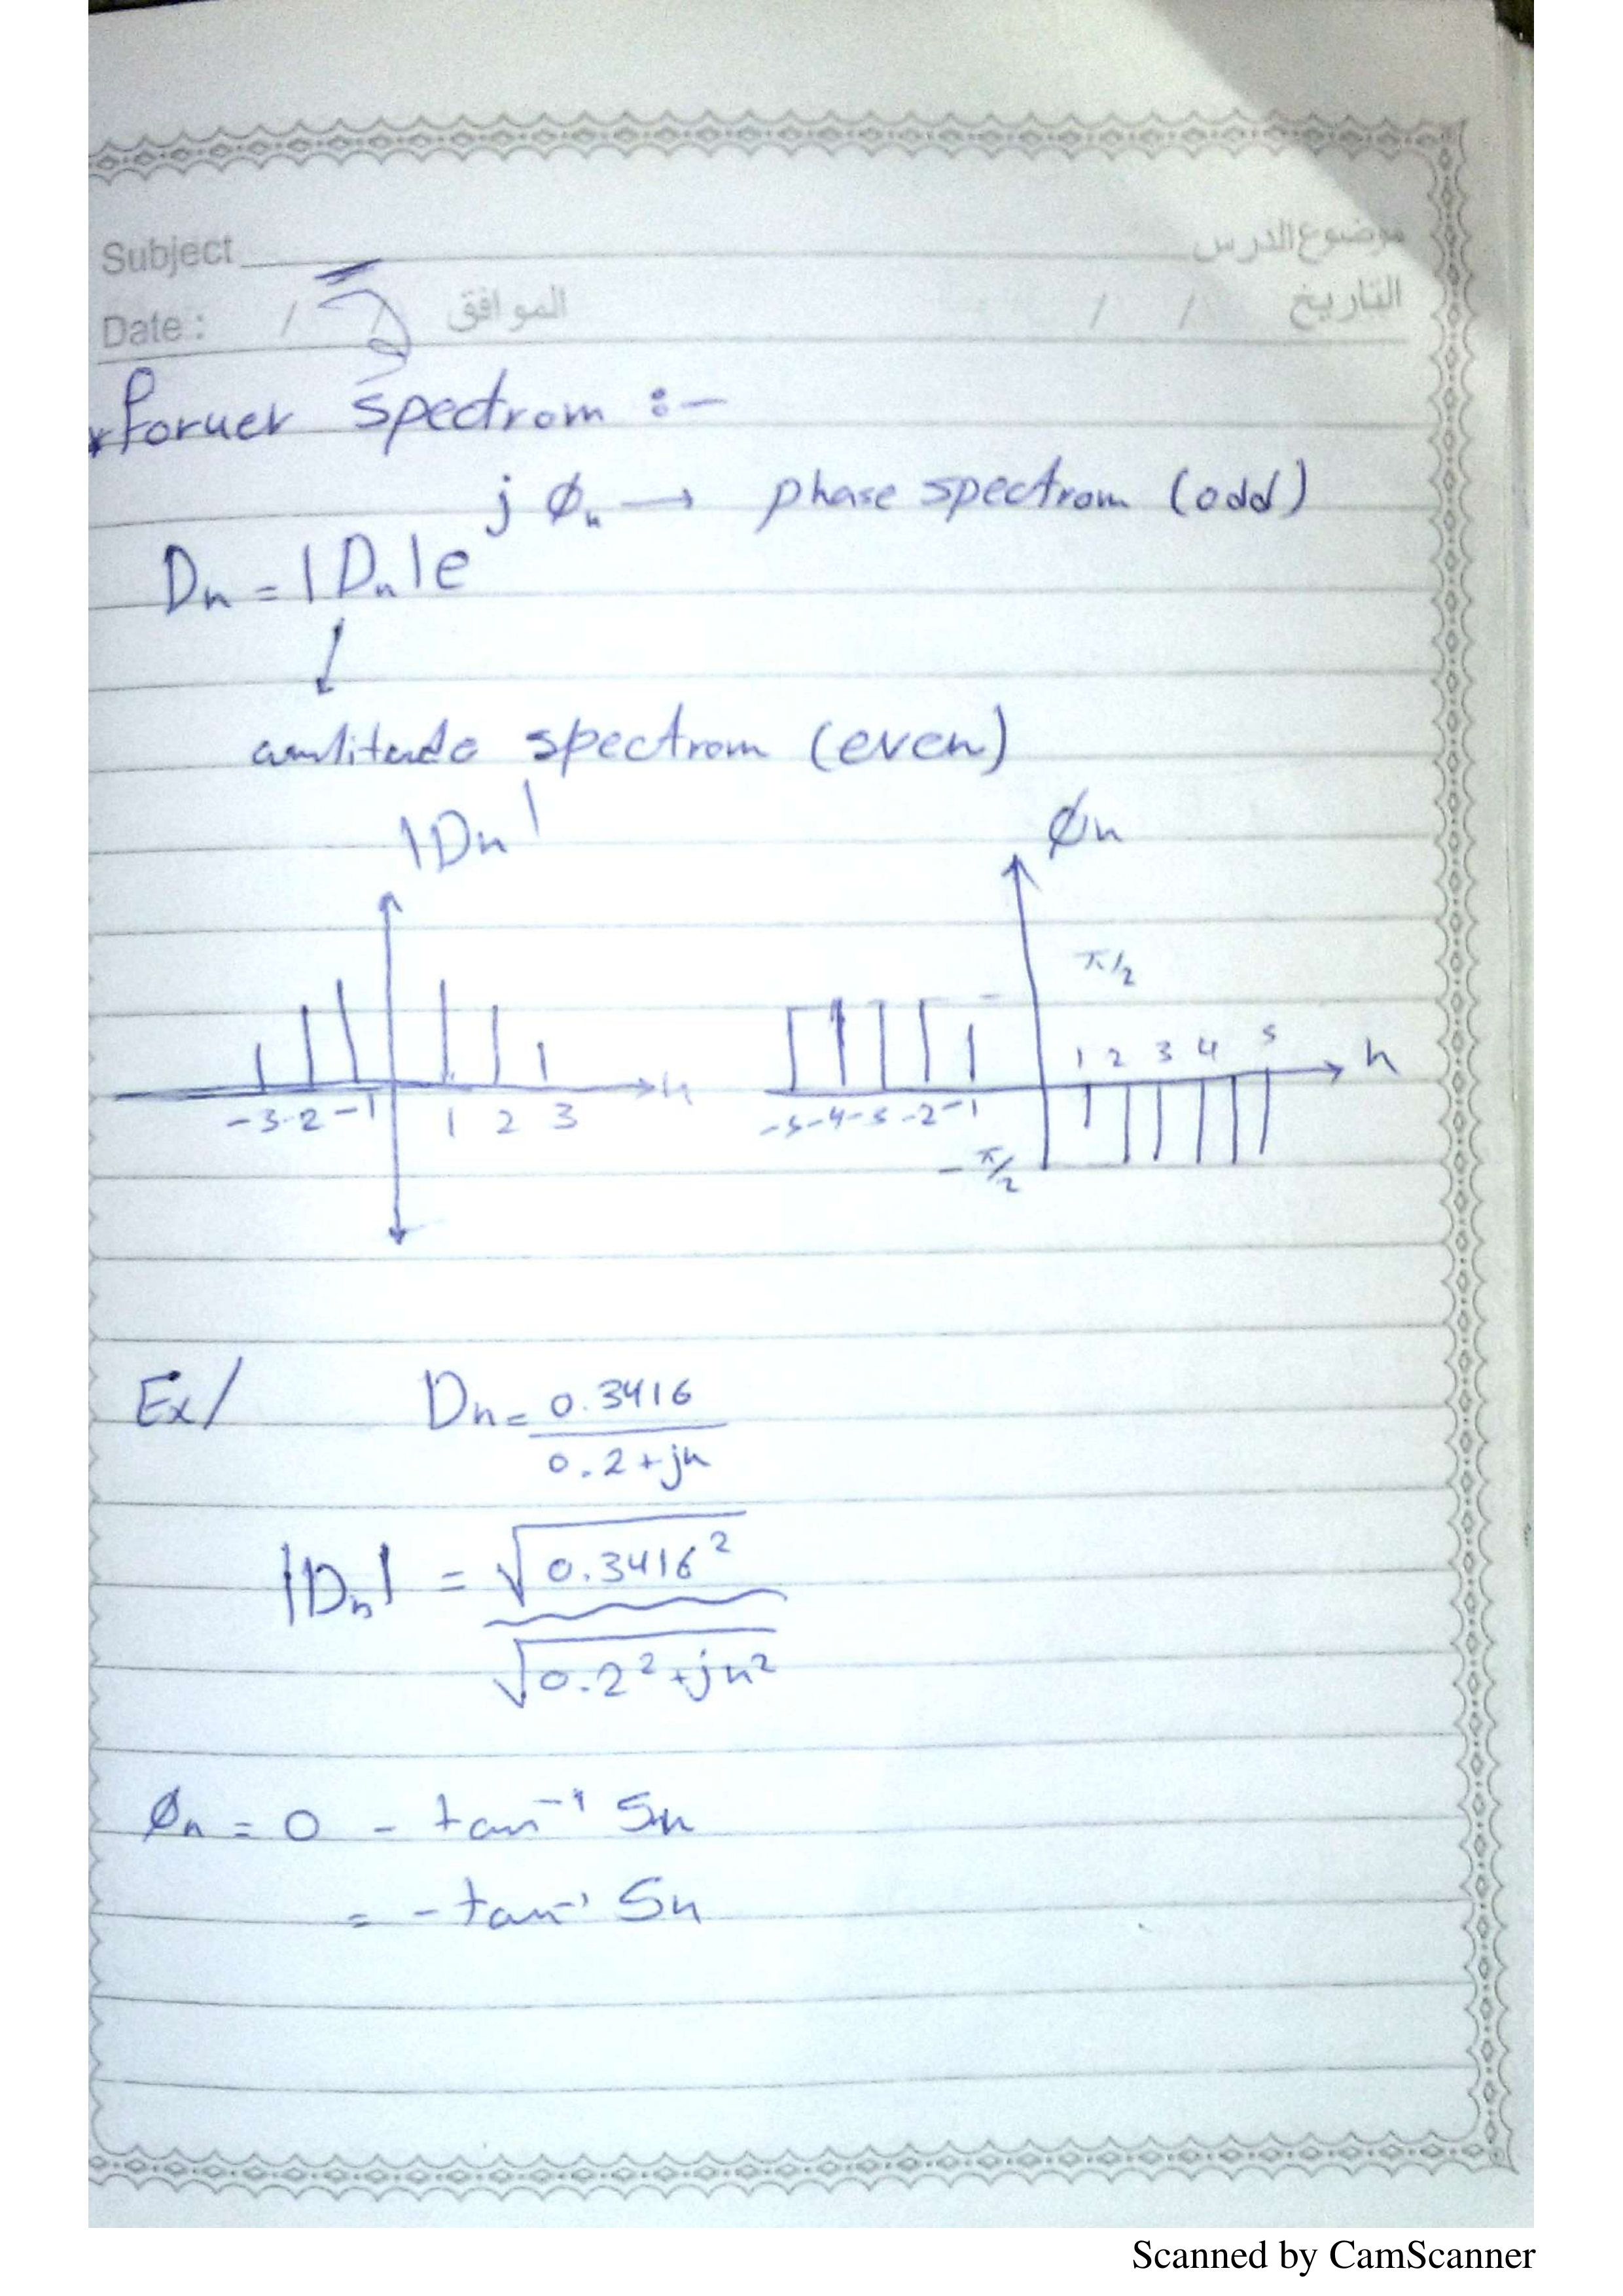 Subject موضوع الدرس
Date : / / الموافق / / التاريخ
*Foruer spectrom :-
Dn = |Dn|e^jØn → phase spectrom (odd)
amlitude spectrom (even)
|Dn| Øn
π/2
1 2 3 4 5 n
-3 -2 -1 1 2 3 n -5 -4 -3 -2 -1
-π/2
Ex/ Dn = 0.3416 / 0.2+jn
|Dn| = √0.3416² / √0.2²+jn²
Øn = 0 - tan⁻¹ 5n
= - tan⁻¹ 5n
Scanned by CamScanner